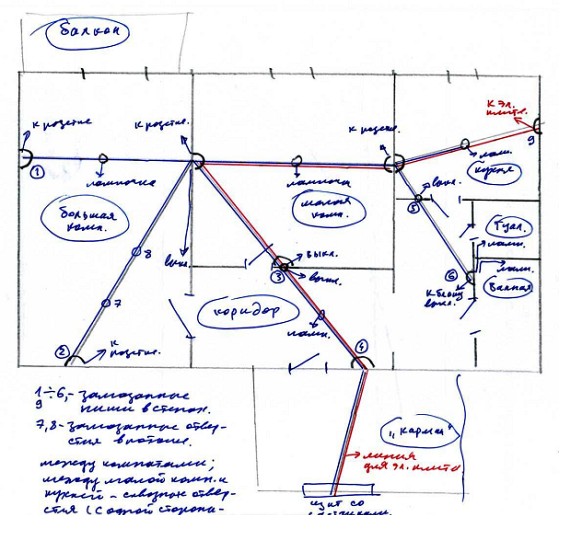 балкон
к розетке
к розетке
к розетк.
к эл.
плите
1
лампочка
лампочка
ламп.
9
кухня
большая
комн.
малая
комн.
5
выкл.
8
выкл.
выкл.
выкл.
3
туал.
ламп.
ламп.
6
ванная
к блоку
выкл.
7
коридор
ламп.
2
к розетке
4
1÷6,- замазанные
9 ниши в стенах.
7,8- замазанные отвер-
стия в потолке.
"карман"
линия
для эл. плиты
между комнатами;
между малой комн. и
кухней - сквозное отвер-
стия (с одной стороны-
щит со
счетчиками